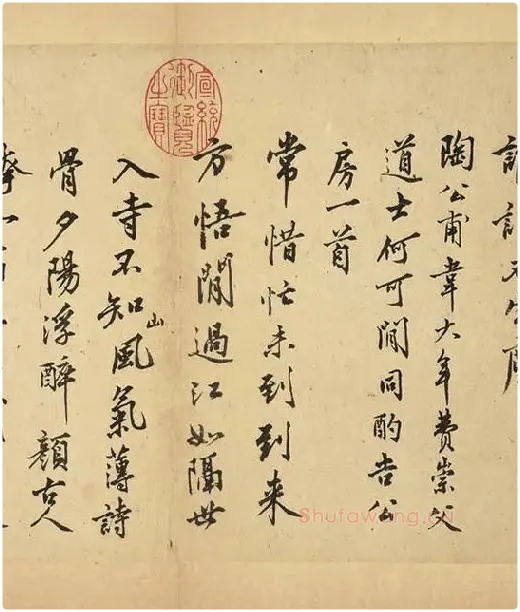 陶公甫韋大年費崇父
道士何可閒同酌告公
房一首
常惜忙未到到来
方悟閒過江如隔世
入寺不知山風氣薄詩
骨夕陽浮醉顏古人
宣統御覽之寶
Shufawang.cn